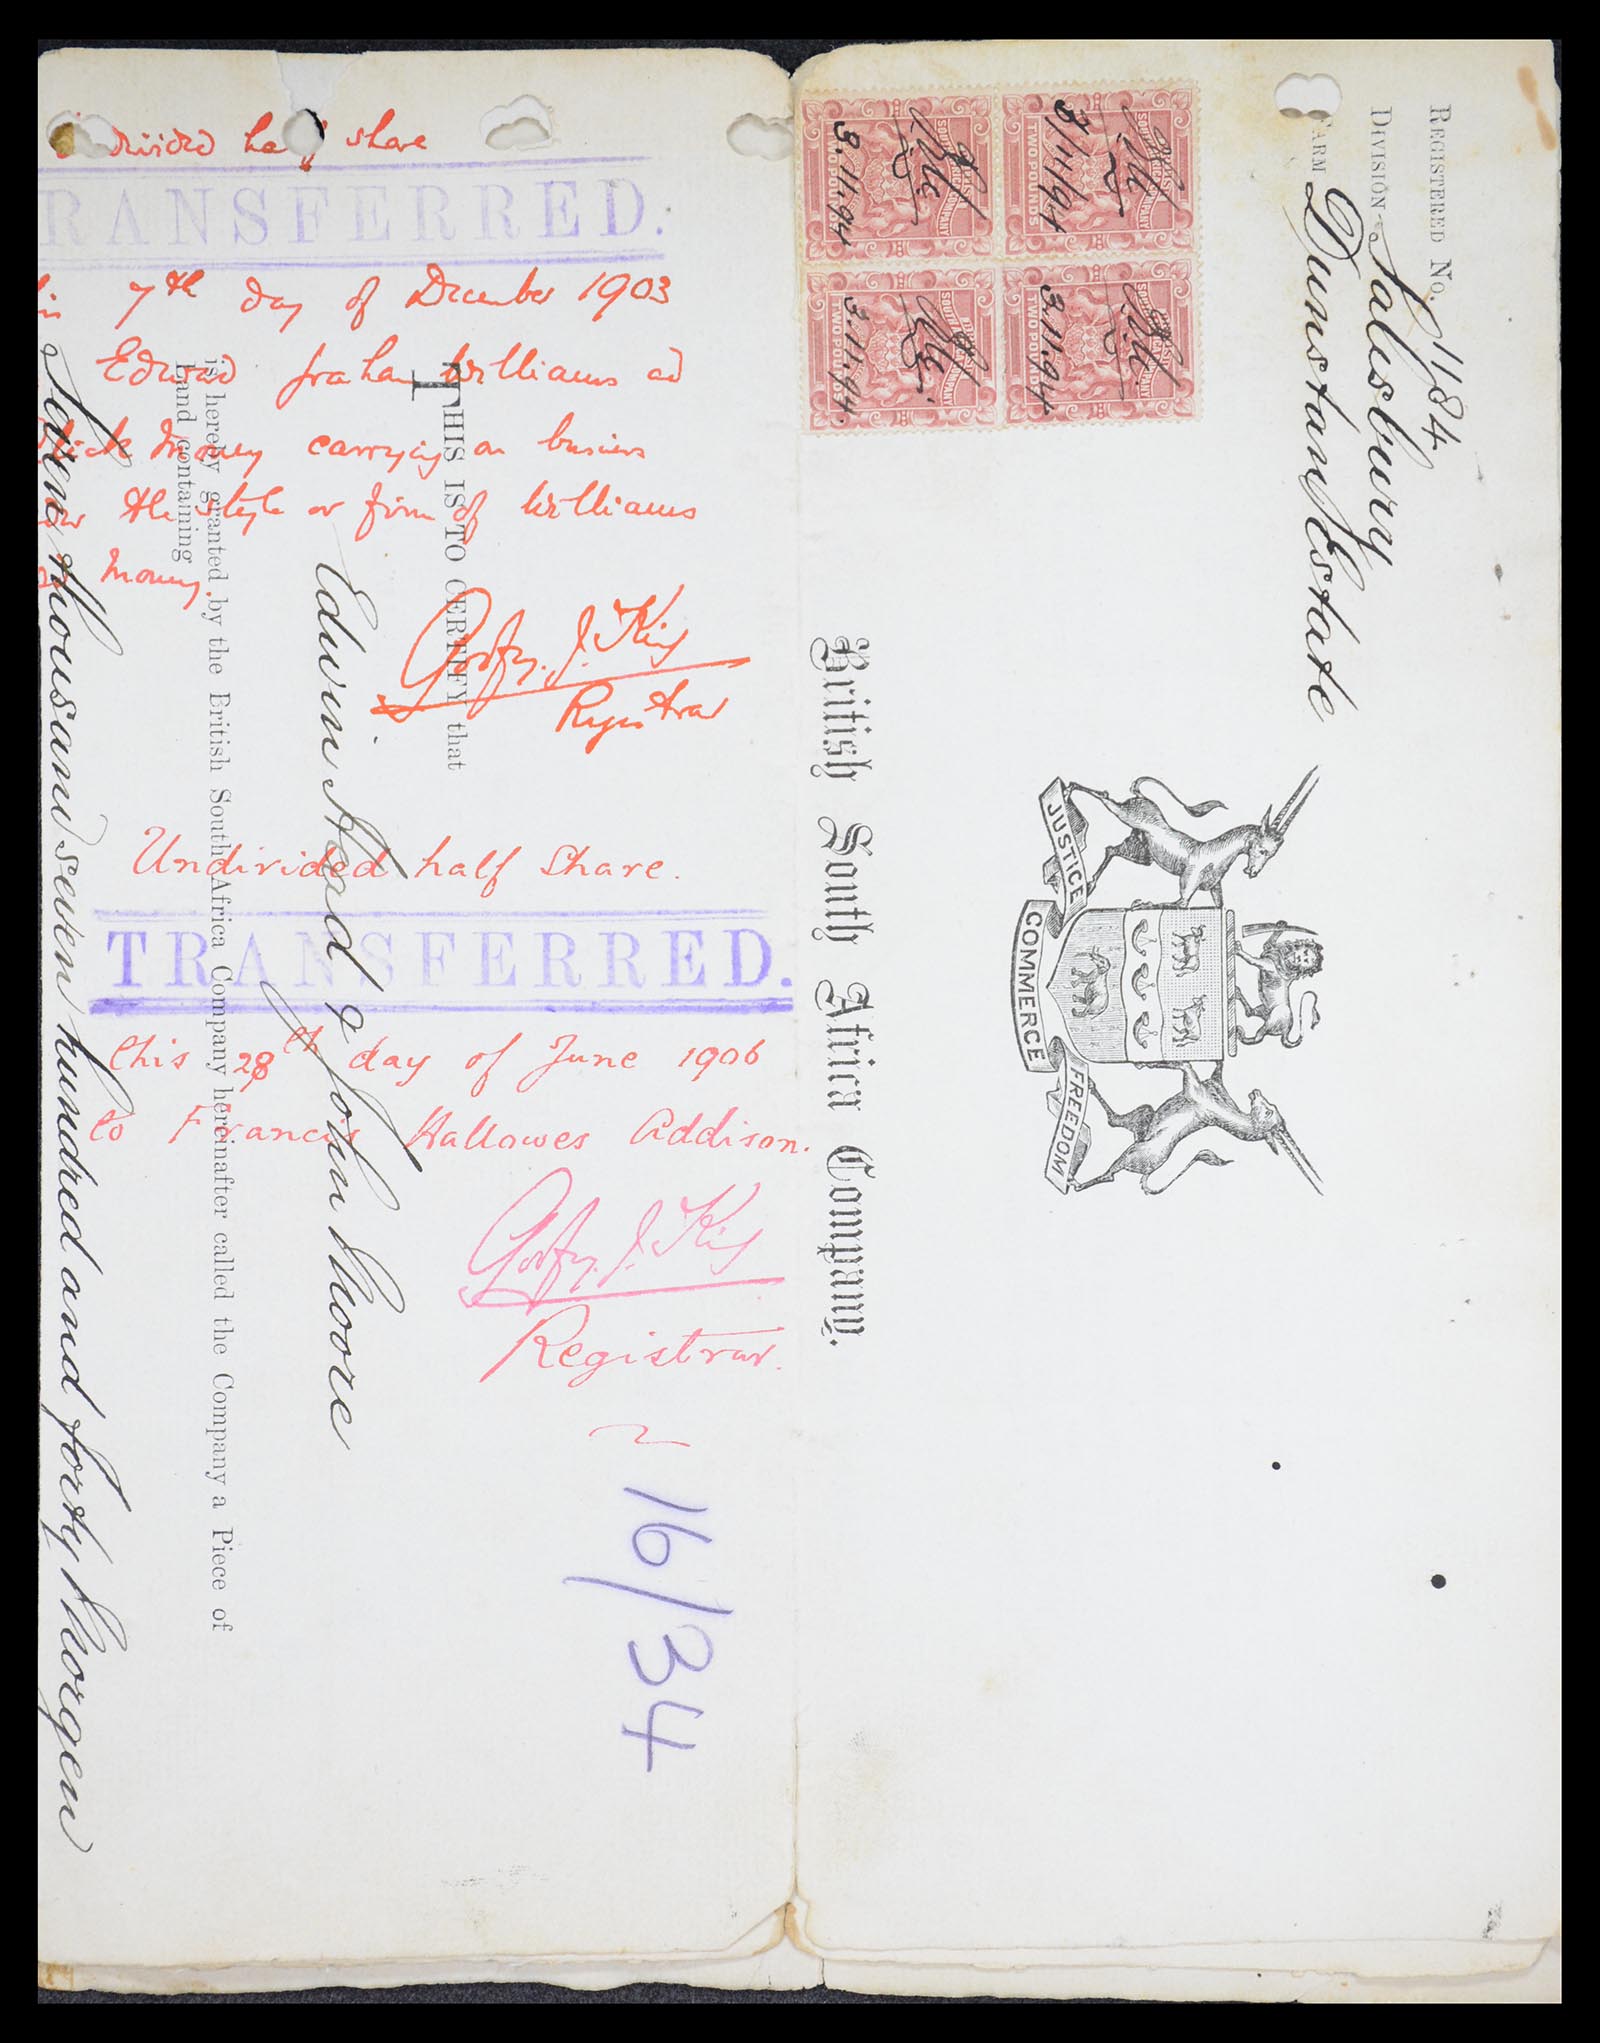 REGISTERED No. 1184
DIVISION Salisbury
FARM Dunstan Estate
JUSTICE
COMMERCE
FREEDOM
British South Africa Company.
BRITISH SOUTH AFRICA COMPANY
TWO POUNDS
3/11/94
BRITISH SOUTH AFRICA COMPANY
TWO POUNDS
3.11.94
BRITISH SOUTH AFRICA COMPANY
TWO POUNDS
3.11.94
BRITISH SOUTH AFRICA COMPANY
TWO POUNDS
3.11.94
THIS IS TO CERTIFY that
Edwin Head & John Moore
is hereby granted by the British South Africa Company hereinafter called the Company a Piece of
Land containing
Seven thousand seven hundred and forty Morgen
half share
TRANSFERRED.
7th day of December 1903
Edward Graham Williams
carrying on business
the style or firm of Williams
Godfrey J. King
Registrar
Undivided half share.
TRANSFERRED.
this 28th day of June 1906
to Francis Hallowes Addison.
Godfrey J. King
Registrar.
16/34